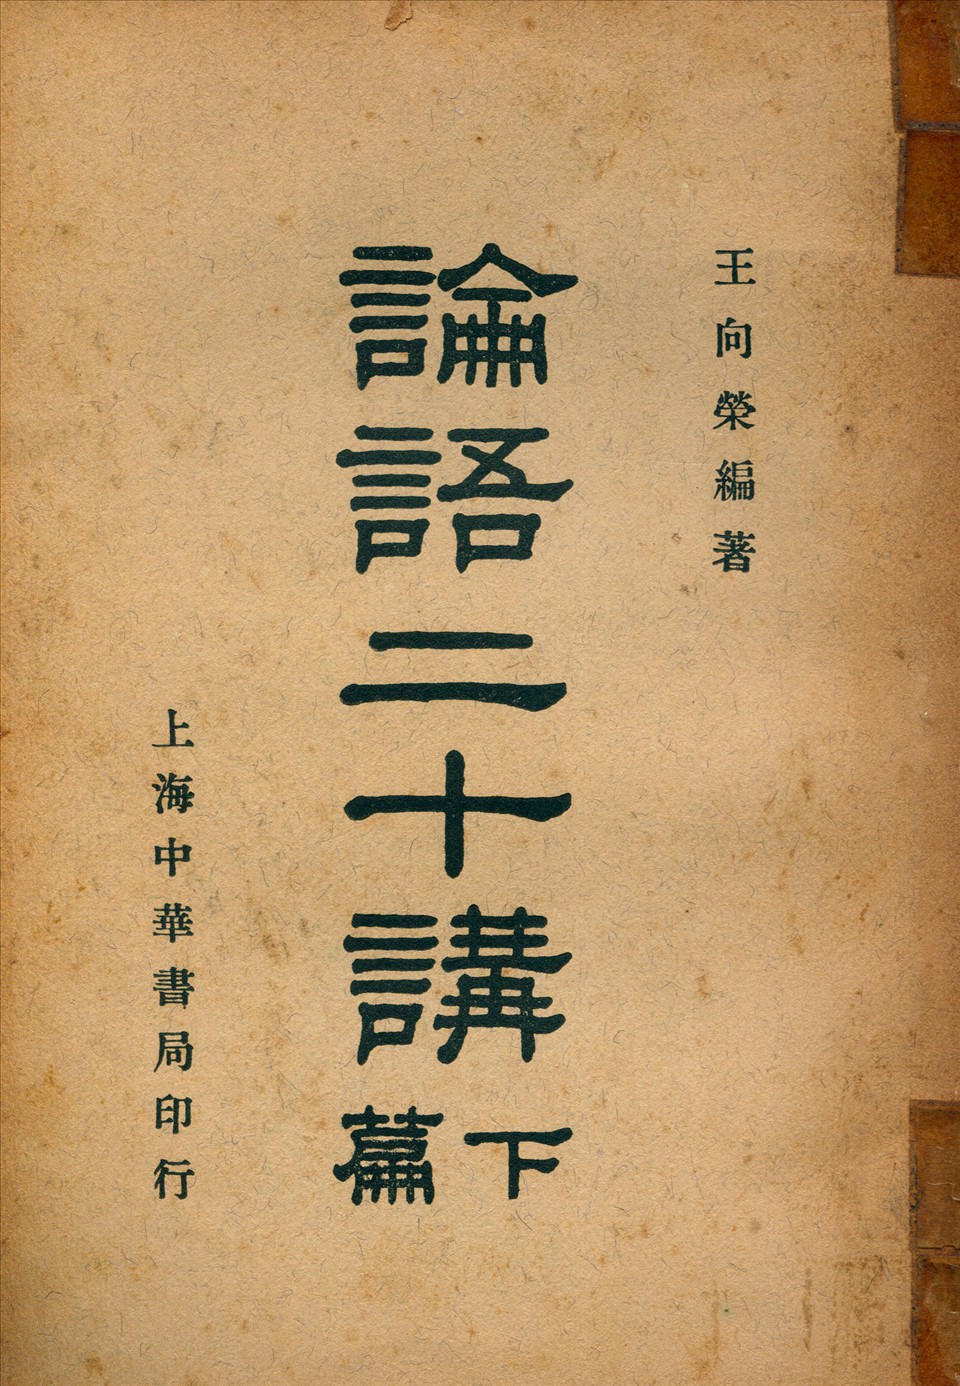 王向榮編著
論語二十講下篇
上海中華書局印行